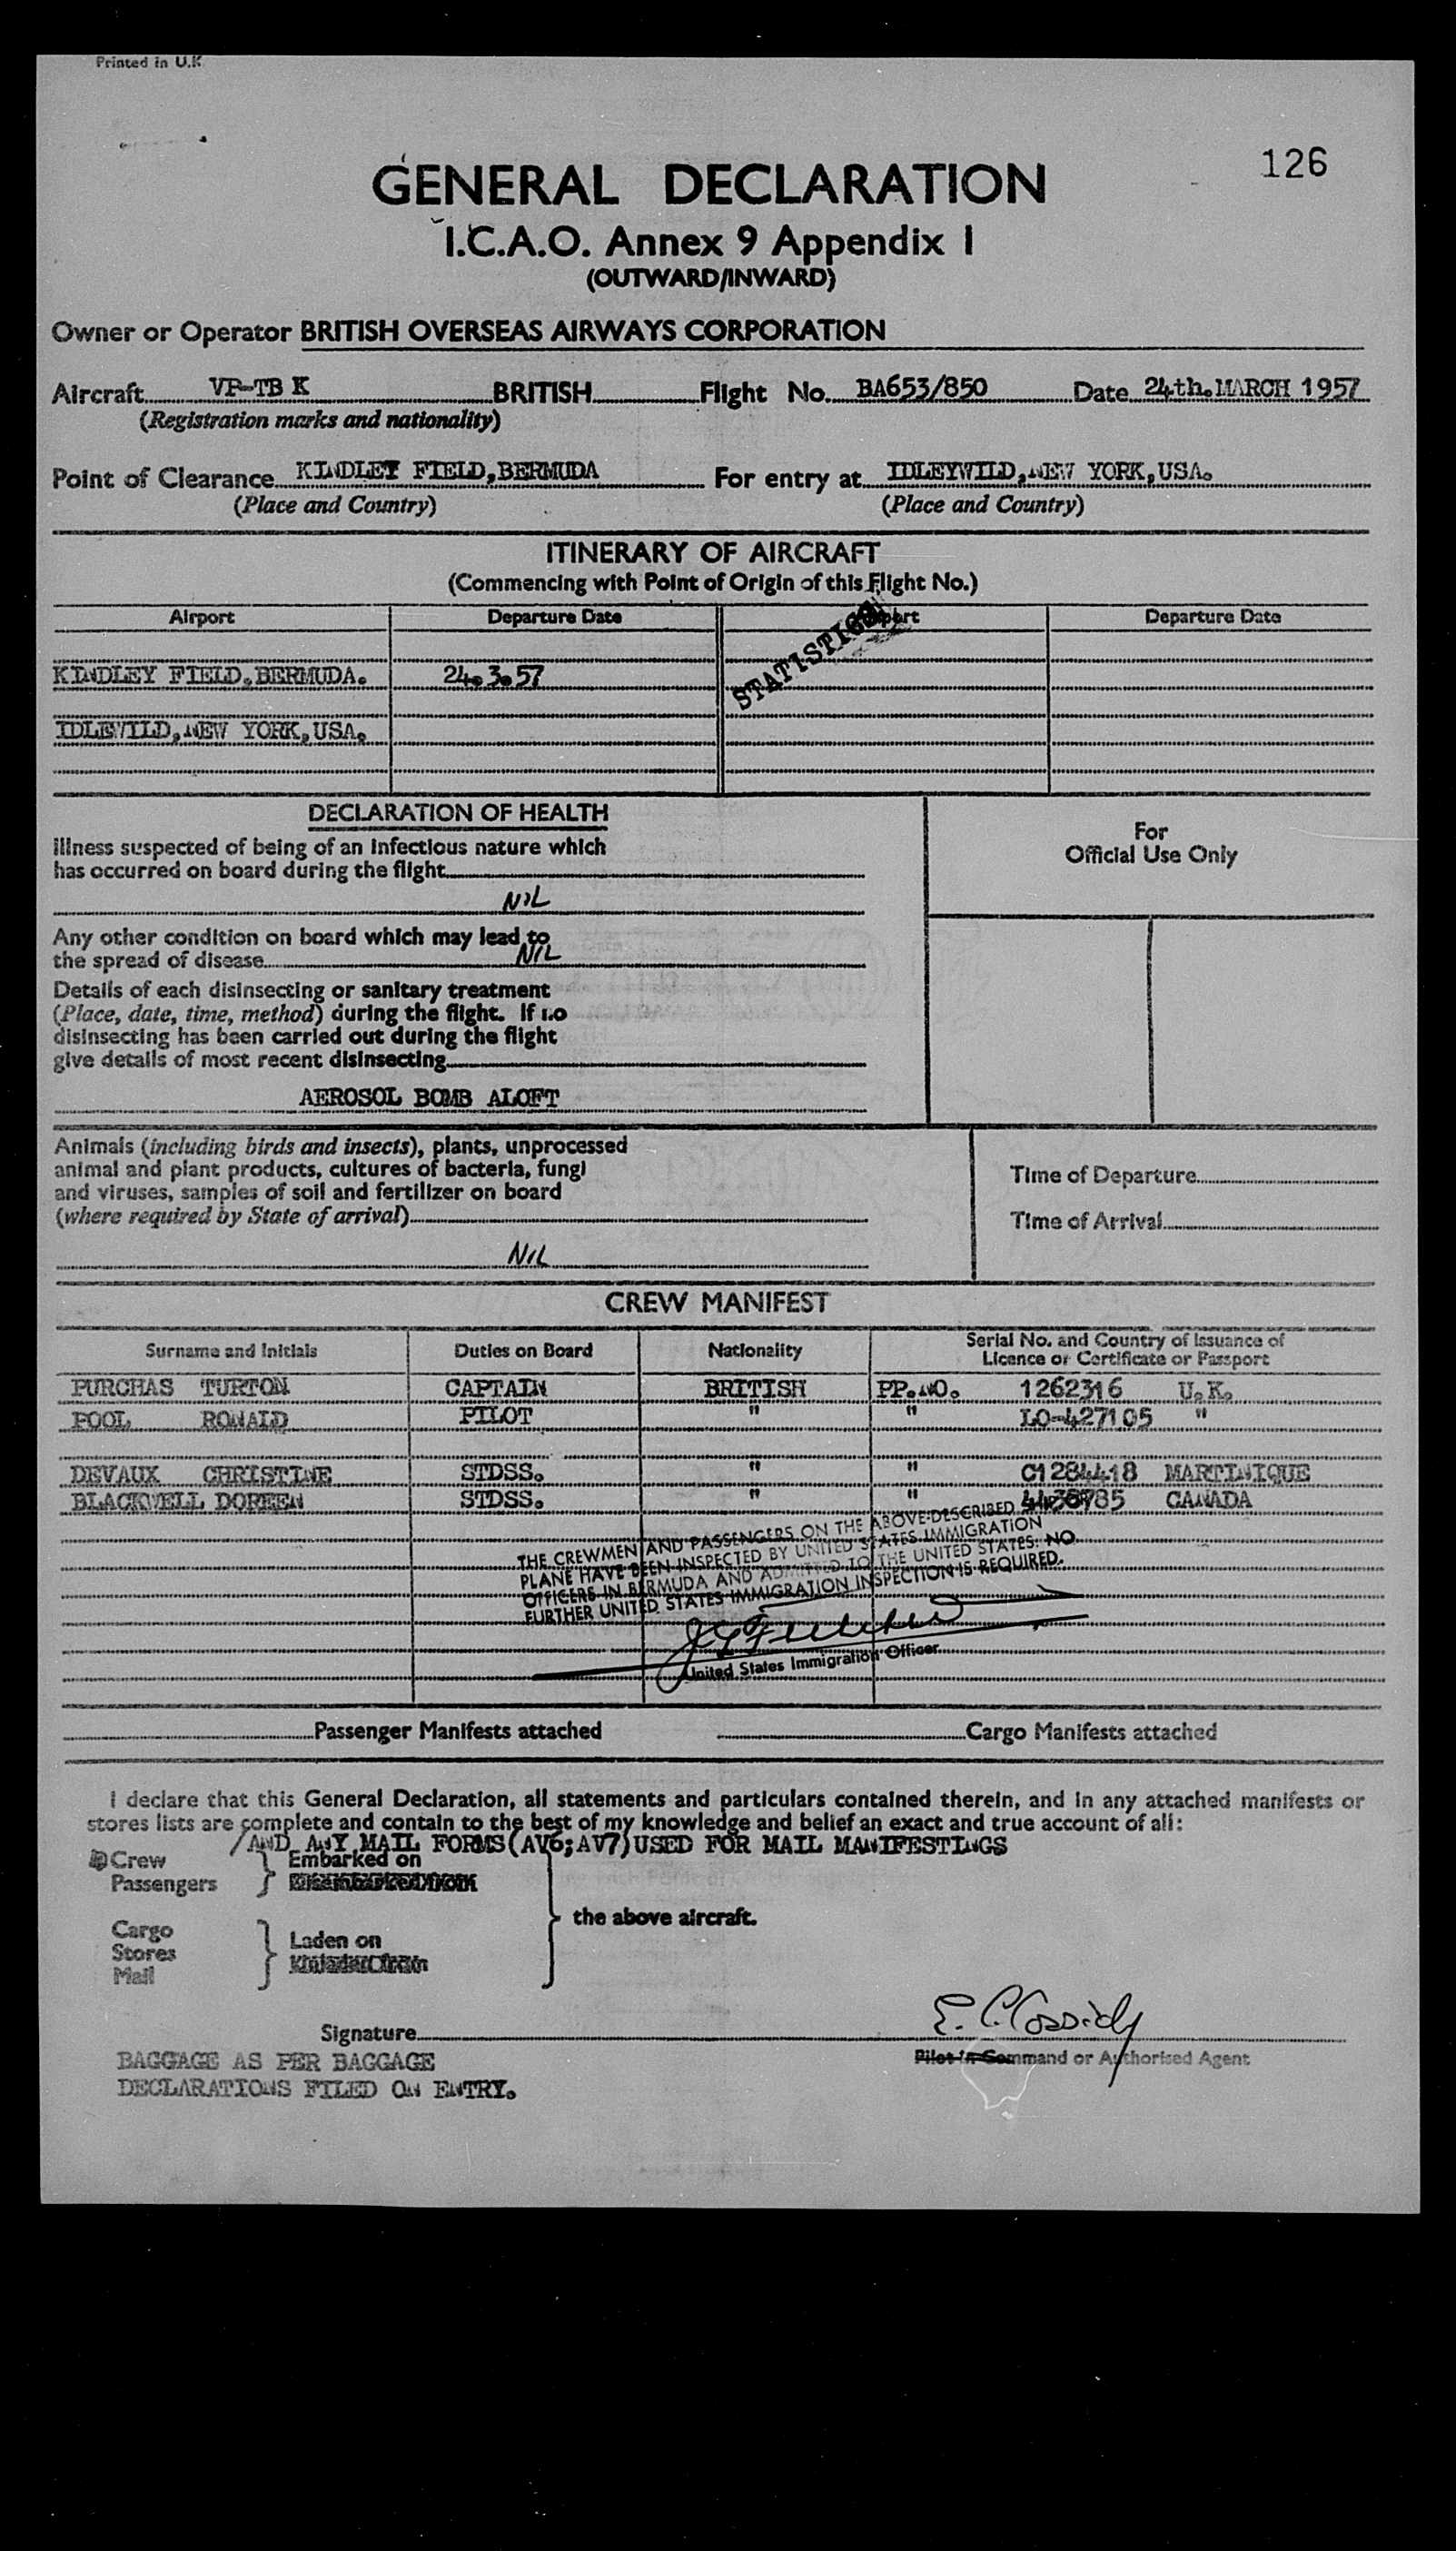 Printed in U.K
126
GENERAL DECLARATION
I.C.A.O. Annex 9 Appendix I
(OUTWARD/INWARD)
Owner or Operator BRITISH OVERSEAS AIRWAYS CORPORATION
Aircraft VP-TB K BRITISH Flight No. BA653/850 Date 24th.MARCH 1957
(Registration marks and nationality)
Point of Clearance KINDLEY FIELD,BERMUDA For entry at IDLEYWILD,NEW YORK,USA.
(Place and Country) (Place and Country)
ITINERARY OF AIRCRAFT
(Commencing with Point of Origin of this Flight No.)
Airport Departure Date Airport Departure Date
STATISTICS
KINDLEY FIELD,BERMUDA. 24.3.57
IDLEWILD,NEW YORK,USA.
DECLARATION OF HEALTH
For
Official Use Only
Illness suspected of being of an infectious nature which
has occurred on board during the flight
NIL
Any other condition on board which may lead to
the spread of disease NIL
Details of each disinsecting or sanitary treatment
(Place, date, time, method) during the flight. If no
disinsecting has been carried out during the flight
give details of most recent disinsecting
AEROSOL BOMB ALOFT
Animals (including birds and insects), plants, unprocessed
animal and plant products, cultures of bacteria, fungi
and viruses, samples of soil and fertilizer on board
(where required by State of arrival)
NIL
Time of Departure
Time of Arrival
CREW MANIFEST
Surname and Initials Duties on Board Nationality Serial No. and Country of Issuance of
Licence or Certificate or Passport
PURCHAS TURTON CAPTAIN BRITISH PP.NO. 1262316 U.K.
POOL RONALD PILOT " " LO-427105 "
DEVAUX CHRISTINE STDSS. " " C1284418 MARTINIQUE
BLACKWELL DOREEN STDSS. " " CANADA
THE CREWMEN AND PASSENGERS ON THE ABOVE-DESCRIBED
PLANE HAVE BEEN INSPECTED BY UNITED STATES IMMIGRATION
OFFICERS IN BERMUDA AND ADMITTED TO THE UNITED STATES. NO
FURTHER UNITED STATES IMMIGRATION INSPECTION IS REQUIRED.
United States Immigration Officer
Passenger Manifests attached Cargo Manifests attached
I declare that this General Declaration, all statements and particulars contained therein, and in any attached manifests or
stores lists are complete and contain to the best of my knowledge and belief an exact and true account of all:
/AND ANY MAIL FORMS(AV6;AV7)USED FOR MAIL MANIFESTINGS
Crew Embarked on
Passengers
the above aircraft.
Cargo
Stores Laden on
Mail
E. C. Cassidy
Signature
Pilot in Command or Authorised Agent
BAGGAGE AS PER BAGGAGE
DECLARATIONS FILED ON ENTRY.